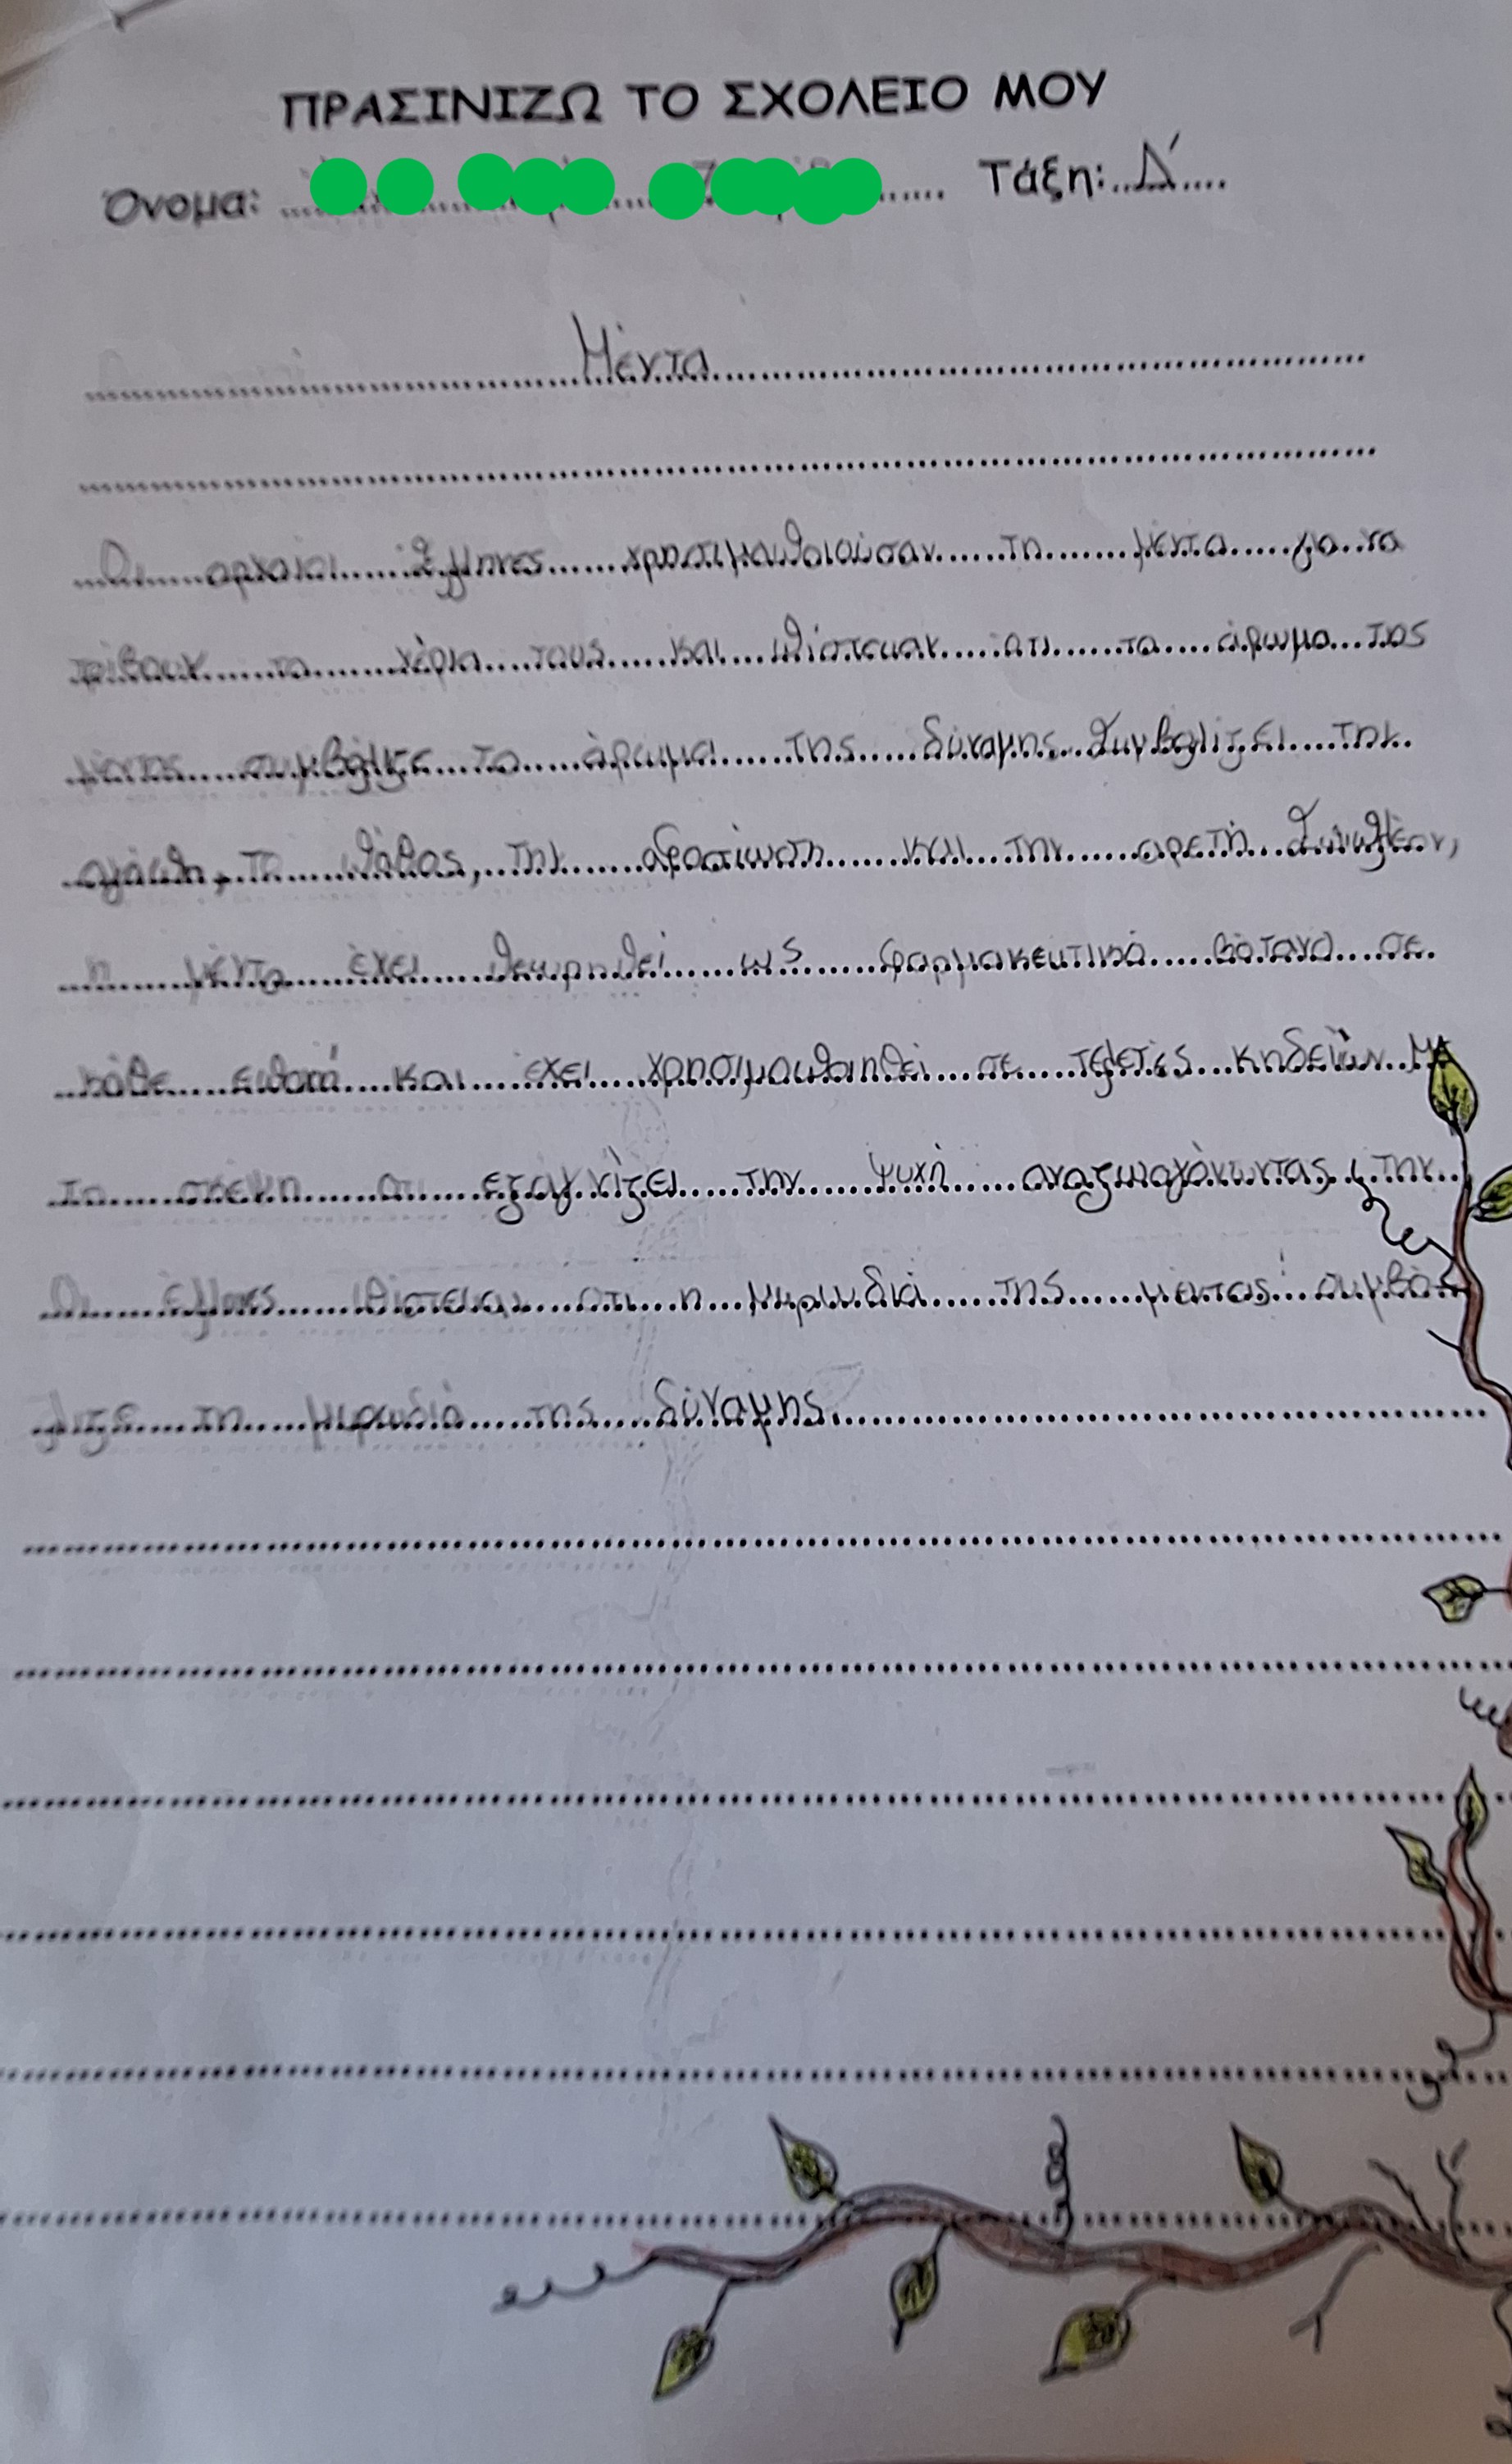 ΠΡΑΣΙΝΙΖΩ ΤΟ ΣΧΟΛΕΙΟ ΜΟΥ
Όνομα: Τάξη: Δ΄
Μέντα
Οι αρχαίοι Έλληνες χρησιμοποιούσαν τη μέντα για να
τρίβουν τα χέρια τους και πίστευαν ότι το άρωμα της
μέντας συμβόλιζε το άρωμα της δύναμης. Συμβολίζει την
αγάπη, το πάθος, την αφοσίωση και την αρετή. Συνπλέον,
η μέντα έχει θεωρηθεί ως φαρμακευτικό βότανο σε
κάθε εποχή και έχει χρησιμοποιηθεί σε τελετές κηδειών με
τη σκέψη ότι εξαγνίζει την ψυχή αναζωογόνωντας την.
Οι έλληνες πίστευαν ότι η μυρωδιά της μέντας συμβό-
λιζε τη μυρωδιά της δύναμης.